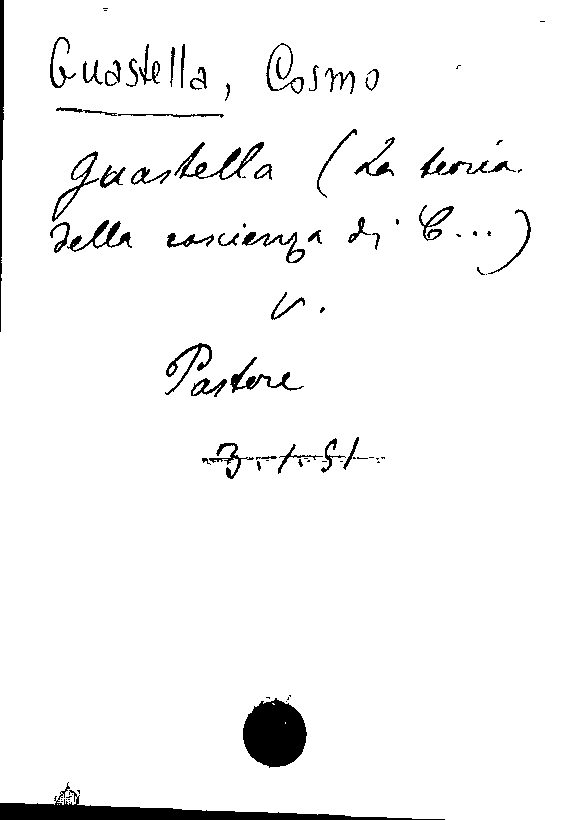 Guastella, Cosmo
Guastella (La teoria
della coscienza di C...)
v.
Pastore
3.1.51